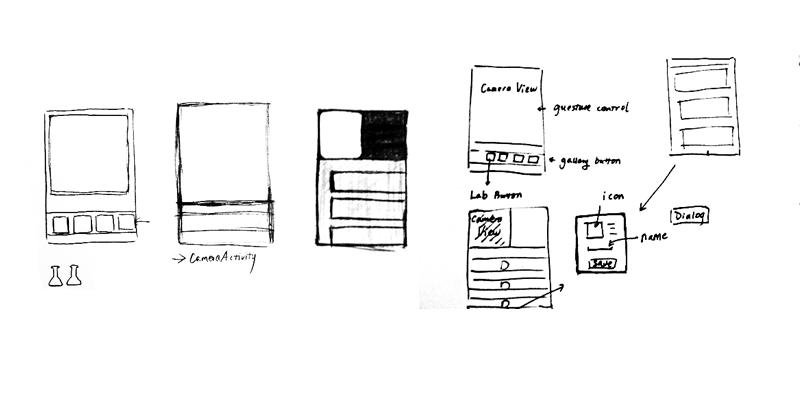 CameraActivity
Camera View
guesture control
gallery button
Lab Button
Camera
View
icon
name
Save
Dialog